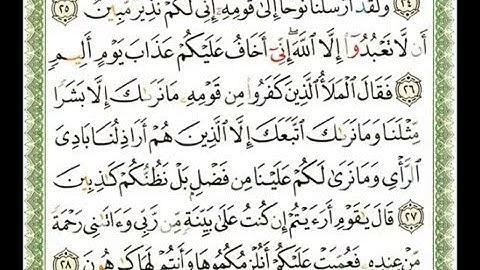 ﴿٢٤﴾ وَلَقَدْ أَرْسَلْنَا نُوحًا إِلَىٰ قَوْمِهِۦٓ إِنِّى لَكُمْ نَذِيرٌ مُّبِينٌ ﴿٢٥﴾
أَن لَّا تَعْبُدُوٓا۟ إِلَّا ٱللَّهَ ۖ إِنِّىٓ أَخَافُ عَلَيْكُمْ عَذَابَ يَوْمٍ أَلِيمٍ
﴿٢٦﴾ فَقَالَ ٱلْمَلَأُ ٱلَّذِينَ كَفَرُوا۟ مِن قَوْمِهِۦ مَا نَرَىٰكَ إِلَّا بَشَرًا
مِّثْلَنَا وَمَا نَرَىٰكَ ٱتَّبَعَكَ إِلَّا ٱلَّذِينَ هُمْ أَرَاذِلُنَا بَادِىَ
ٱلرَّأْىِ وَمَا نَرَىٰ لَكُمْ عَلَيْنَا مِن فَضْلٍۭ بَلْ نَظُنُّكُمْ كَـٰذِبِينَ
﴿٢٧﴾ قَالَ يَـٰقَوْمِ أَرَءَيْتُمْ إِن كُنتُ عَلَىٰ بَيِّنَةٍ مِّن رَّبِّى وَءَاتَىٰنِى رَحْمَةً
مِّنْ عِندِهِۦ فَعُمِّيَتْ عَلَيْكُمْ أَنُلْزِمُكُمُوهَا وَأَنتُمْ لَهَا كَـٰرِهُونَ ﴿٢٨﴾